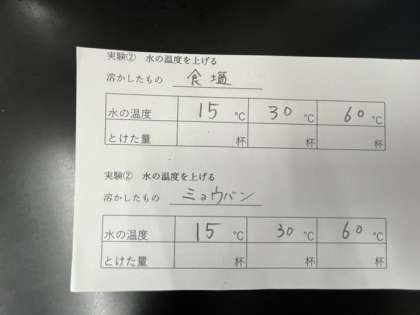 実験② 水の温度を上げる
溶かしたもの 食塩
水の温度 15 ℃ 30 ℃ 60 ℃
とけた量 杯 杯 杯
実験② 水の温度を上げる
溶かしたもの ミョウバン
水の温度 15 ℃ 30 ℃ 60 ℃
とけた量 杯 杯 杯